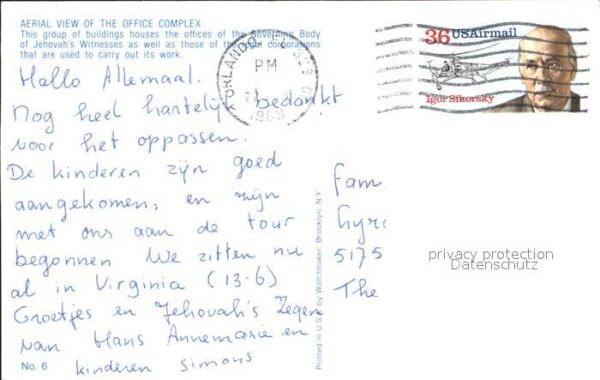 AERIAL VIEW OF THE OFFICE COMPLEX
This group of buildings houses the offices of the Governing Body
of Jehovah's Witnesses as well as those of the legal corporations
that are used to carry out its work.
Hallo Allemaal.
Nog heel hartelijk bedankt
voor het oppassen.
De kinderen zijn goed
aangekomen, en zijn
met ons aan de tour
begonnen We zitten nu
al in Virginia (13-6)
Groetjes en Jehovah's Zegen
van Hans Annemarie en
kinderen Simons
No. 6
Printed in U.S.A. by Watchtower, Brooklyn, N.Y.
ORLANDO
PM
1989
36 USAirmail
Igor Sikorsky
Fam
5175
The
privacy protection
Datenschutz